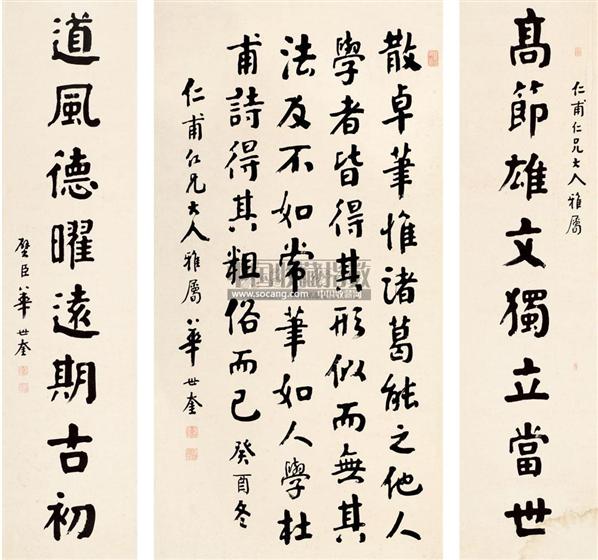 高節雄文獨立當世
仁甫仁兄大人雅屬
散卓筆惟諸葛能之他人
學者皆得其形似而無其
法反不如常筆如人學杜
甫詩得其粗俗而已癸酉冬
仁甫仁兄大人雅屬 華世奎
道風德曜遠期古初
壁臣華世奎
www.socang.com 中国收藏网